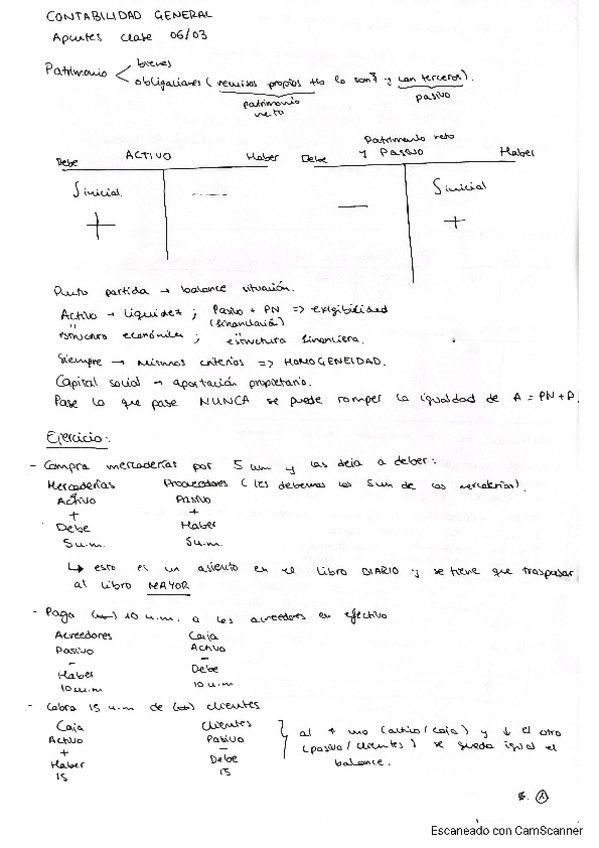 CONTABILIDAD GENERAL
Apuntes clase 06/03
Patrimonio < bienes
obligaciones ( recursos propios no lo son? y con terceros).
patrimonio neto
pasivo
Debe ACTIVO Haber
S inicial —
+
Patrimonio neto
Debe y Pasivo Haber
— S inicial
+
Punto partida → balance situación.
Activo → liquidez ; Pasivo + PN => exigibilidad
(financiación)
estructura económica ; estructura financiera.
Siempre → mismos criterios => HOMOGENEIDAD.
Capital social → aportación propietario.
Pase lo que pase NUNCA se puede romper la igualdad de A = PN + P.
Ejercicio:
- Compra mercaderías por 5 um y las deja a deber:
Mercaderías Proveedores ( les debemos las 5um de las mercaderías).
Activo Pasivo
+ +
Debe Haber
5 u.m. 5u.m.
↳ esto es un asiento en el libro DIARIO y se tiene que traspasar
al libro MAYOR
- Paga 10 u.m. a los acreedores en efectivo
Acreedores Caja
Pasivo Activo
— —
Haber Debe
10 u.m 10 u.m
- Cobra 15 u.m de clientes
Caja Clientes
Activo Pasivo
+ —
Haber Debe
15 15
al ↑ uno (activo/caja) y ↓ el otro
(pasivo/clientes) se queda igual el
balance.
Escaneado con CamScanner